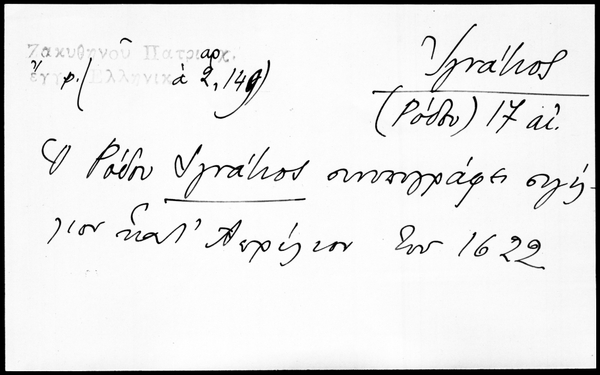 Ζακυθηνοῦ Πατριαρχ.
ἔγγρ. Ἑλληνικ
ἀρ 2, 149)
Ἰγνάτιος
(Ρόδου) 17 αἰ.
Ὁ Ρόδου Ἰγνάτιος συνυπογράφει σιγίλ-
λιον κατ' Ἀπρίλιον του 1622